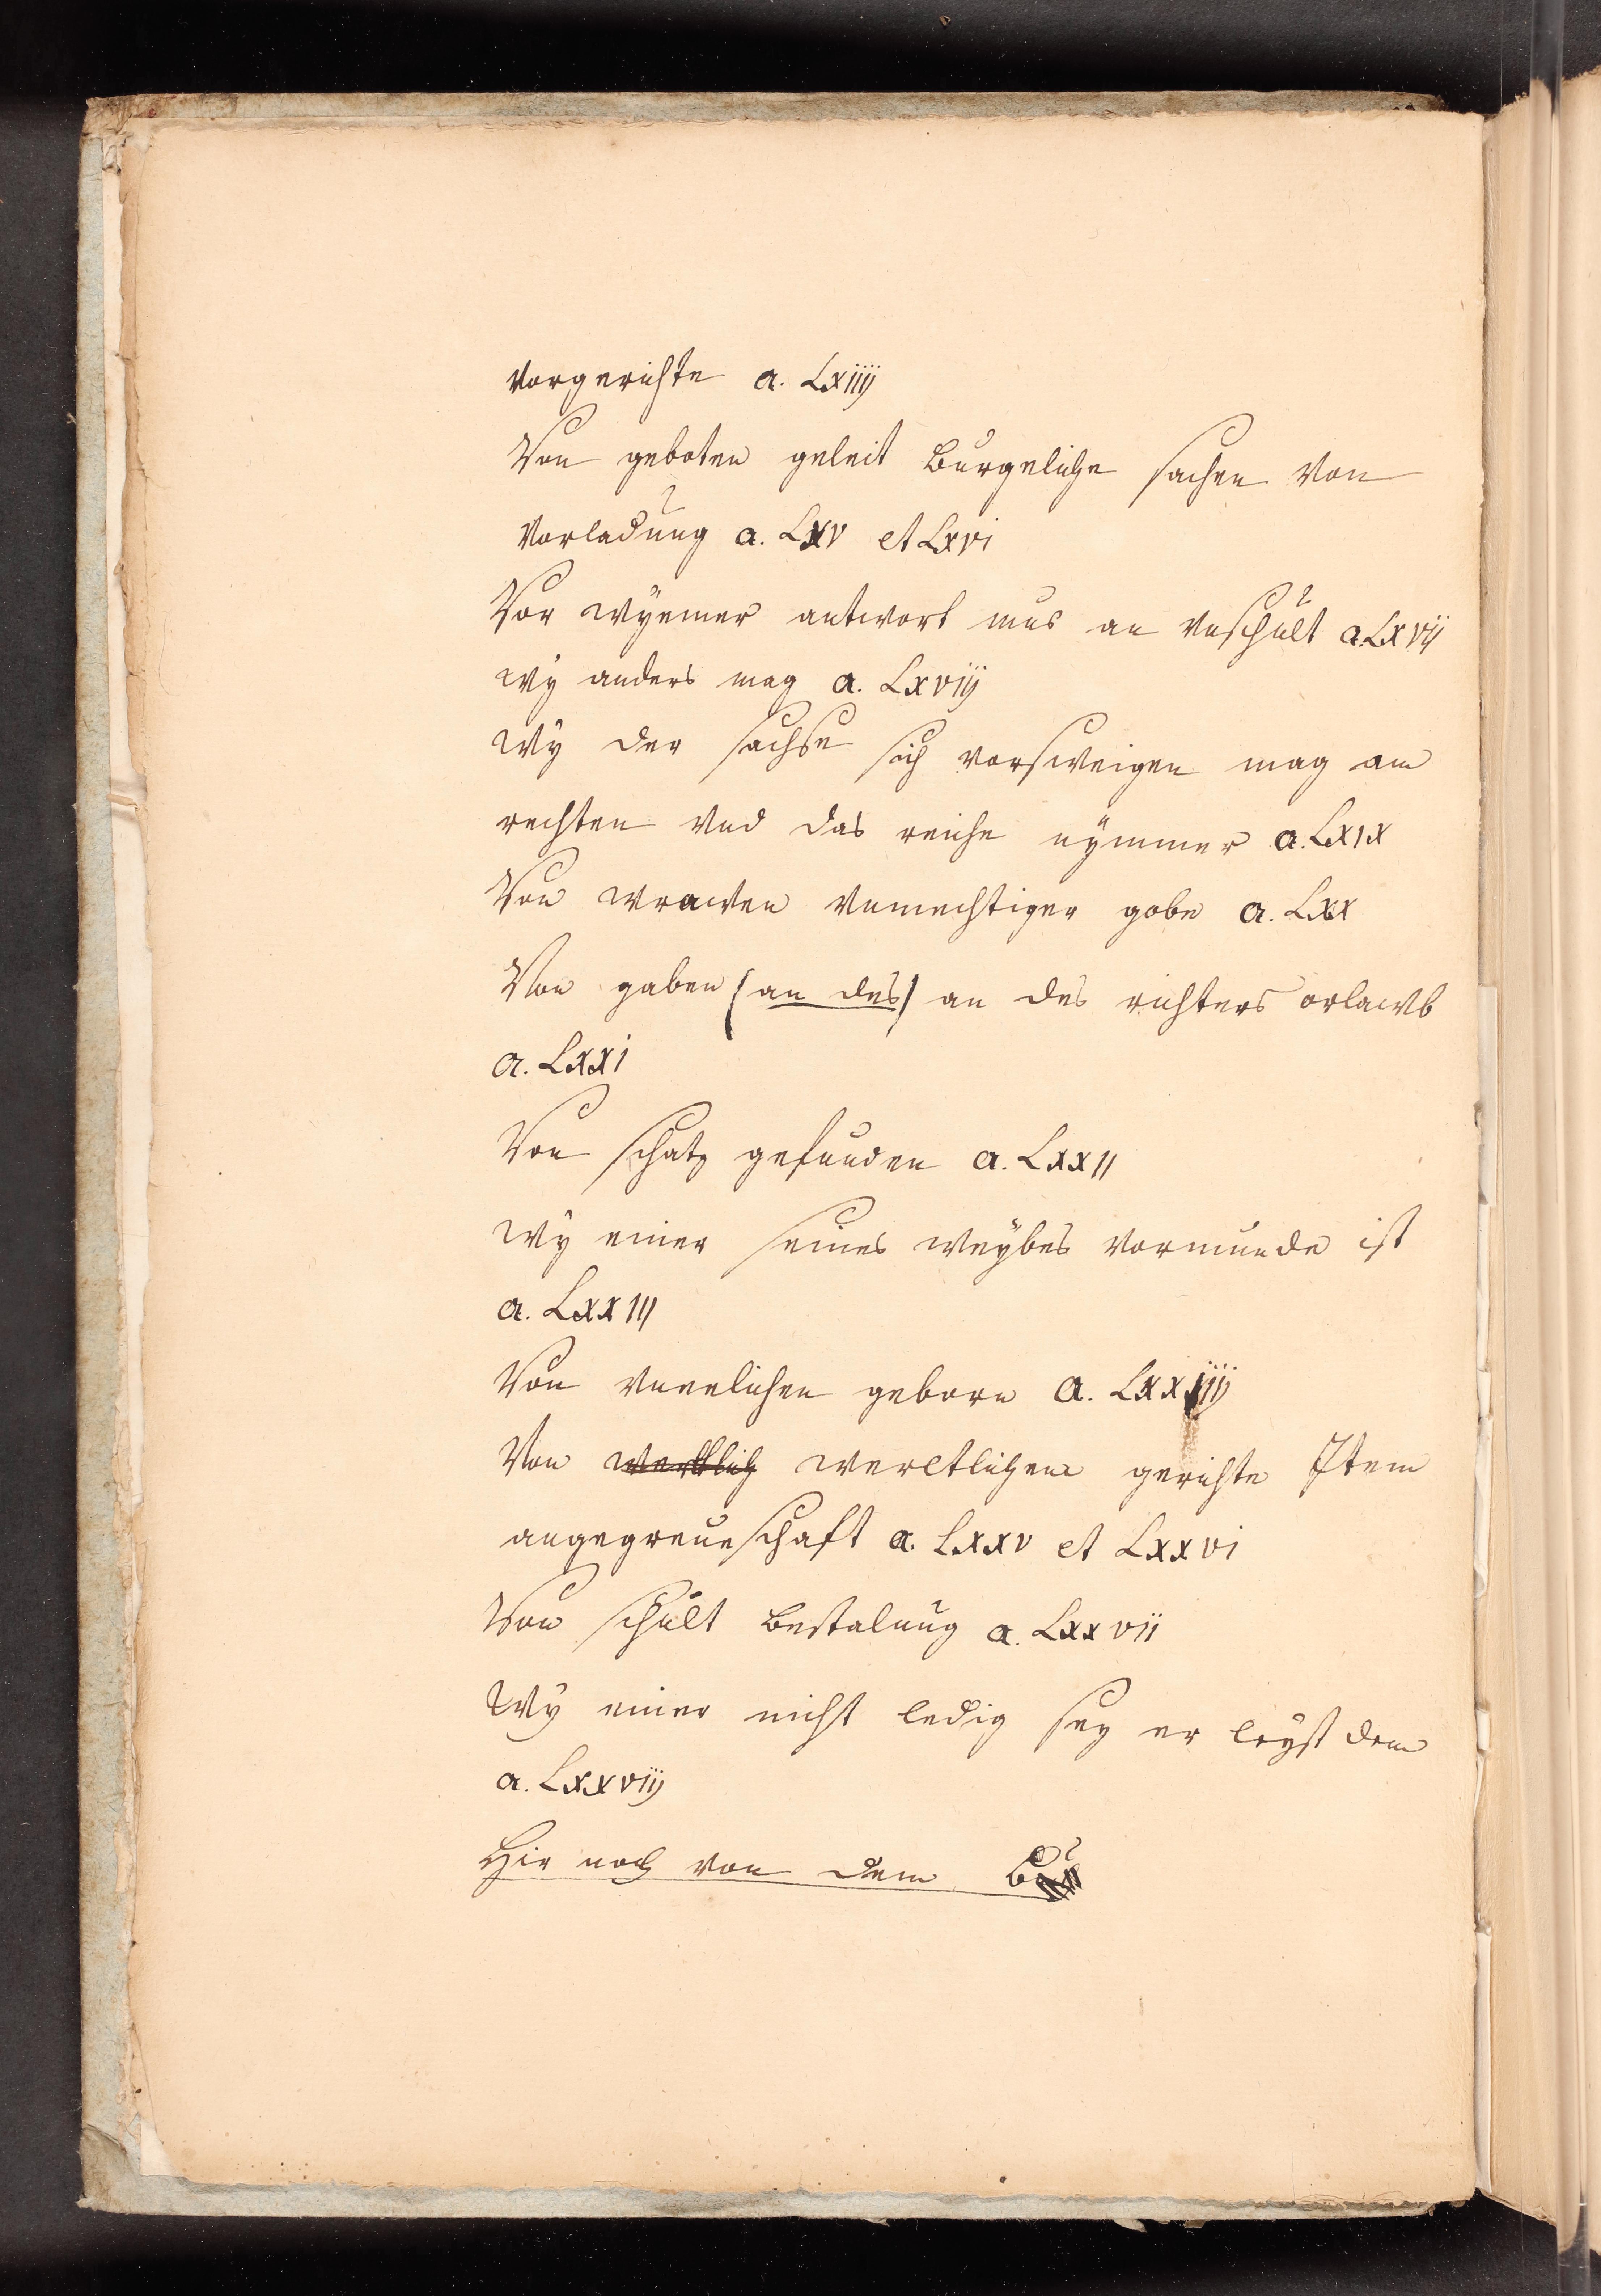 vorgerichte a. Lxiiij
Von geboten geleit burgeliche sachen von
vorladung a. Lxv et Lxvi
Vor wÿemer antwort mus an vnschult a. Lxvij
wÿ anders mag a. Lxviij
wÿ der sachse sich vorsweigen mag am
rechten vnd das reiche nÿmmer a. Lxix
Von wrawen vnmechtiger gobe a. Lxx
Von gaben (an des) an des richters orlawb
a. Lxxi
Von schatz gefunden a. Lxxii
wÿ einer seines weÿbes vormunde ist
a. Lxxiij
Von vneelichen geborn a. Lxxiiij
Von wertlich wereltlichem gerichte Item
angegreueschaft a. Lxxv et Lxxvi
Von schult bestalung a. Lxxvii
Wÿ einer nicht ledig sey er leÿst dem
a. Lxxviij
Hir noch von dem